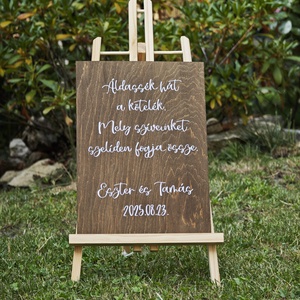 Áldassék hát
a kötelék,
Mely szíveinket
szelíden fogja össze.
Eszter és Tamás
2025.08.23.